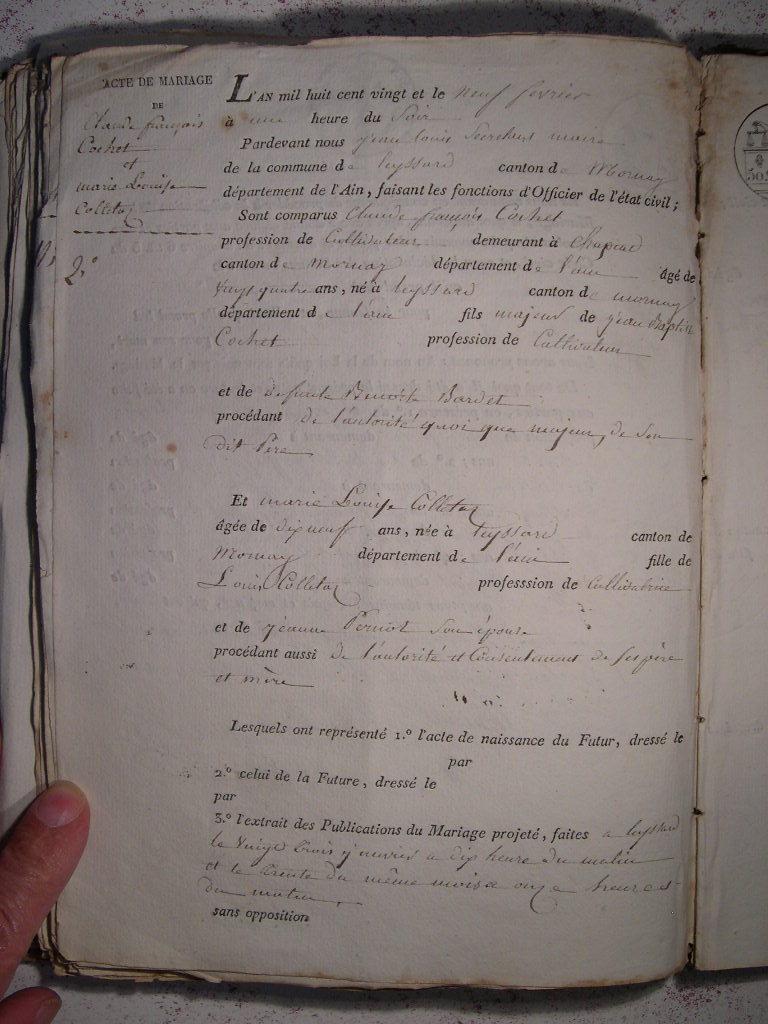 ACTE DE MARIAGE
DE
Claude françois
Cochet
et
marie Louise
Colletaz
2.°
L'AN mil huit cent vingt et le neuf fevrier
à une heure du Soir
Pardevant nous jean louis maire
de la commune de leyssard canton de Mornay
département de l'Ain, faisant les fonctions d'Officier de l'état civil;
Sont comparus Claude françois Cochet
profession de Cultivateur demeurant à
canton de mornay département de l'ain âgé de
vingt quatre ans, né à leyssard canton de mornay
département de l'ain fils majeur de jean Baptiste
Cochet profession de Cultivateur
et de defunte Benoite Bardet
procédant de l'autorité quoi que majeur, de Son
dit Pere
Et marie Louise Colletaz
âgée de dix neuf ans, née à leyssard canton de
Mornay département de l'ain fille de
Louis Colletaz professsion de
et de jeanne Pernot Son épouse
procédant aussi de l'autorité et Consentement de ses père
et mère
Lesquels ont représenté 1.° l'acte de naissance du Futur, dressé le
par
2.° celui de la Future, dressé le
par
3.° l'extrait des Publications du Mariage projeté, faites a leyssard
le vingt trois a dix heure du matin
et le trente du même mois a onze heures
du matin
sans opposition